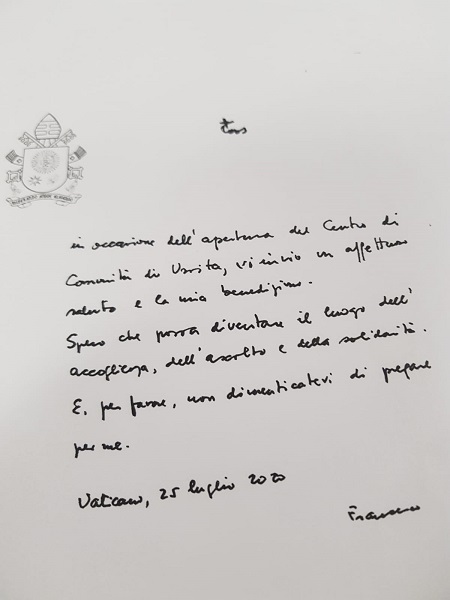 in occasione dell'apertura del Centro di
Comunità di Ussita, vi invio un affettuoso
saluto e la mia benedizione.
Spero che possa diventare il luogo dell'
accoglienza, dell'ascolto e della solidarietà.
E, per favore, non dimenticatevi di pregare
per me.
Vaticano, 25 luglio 2020
Francesco